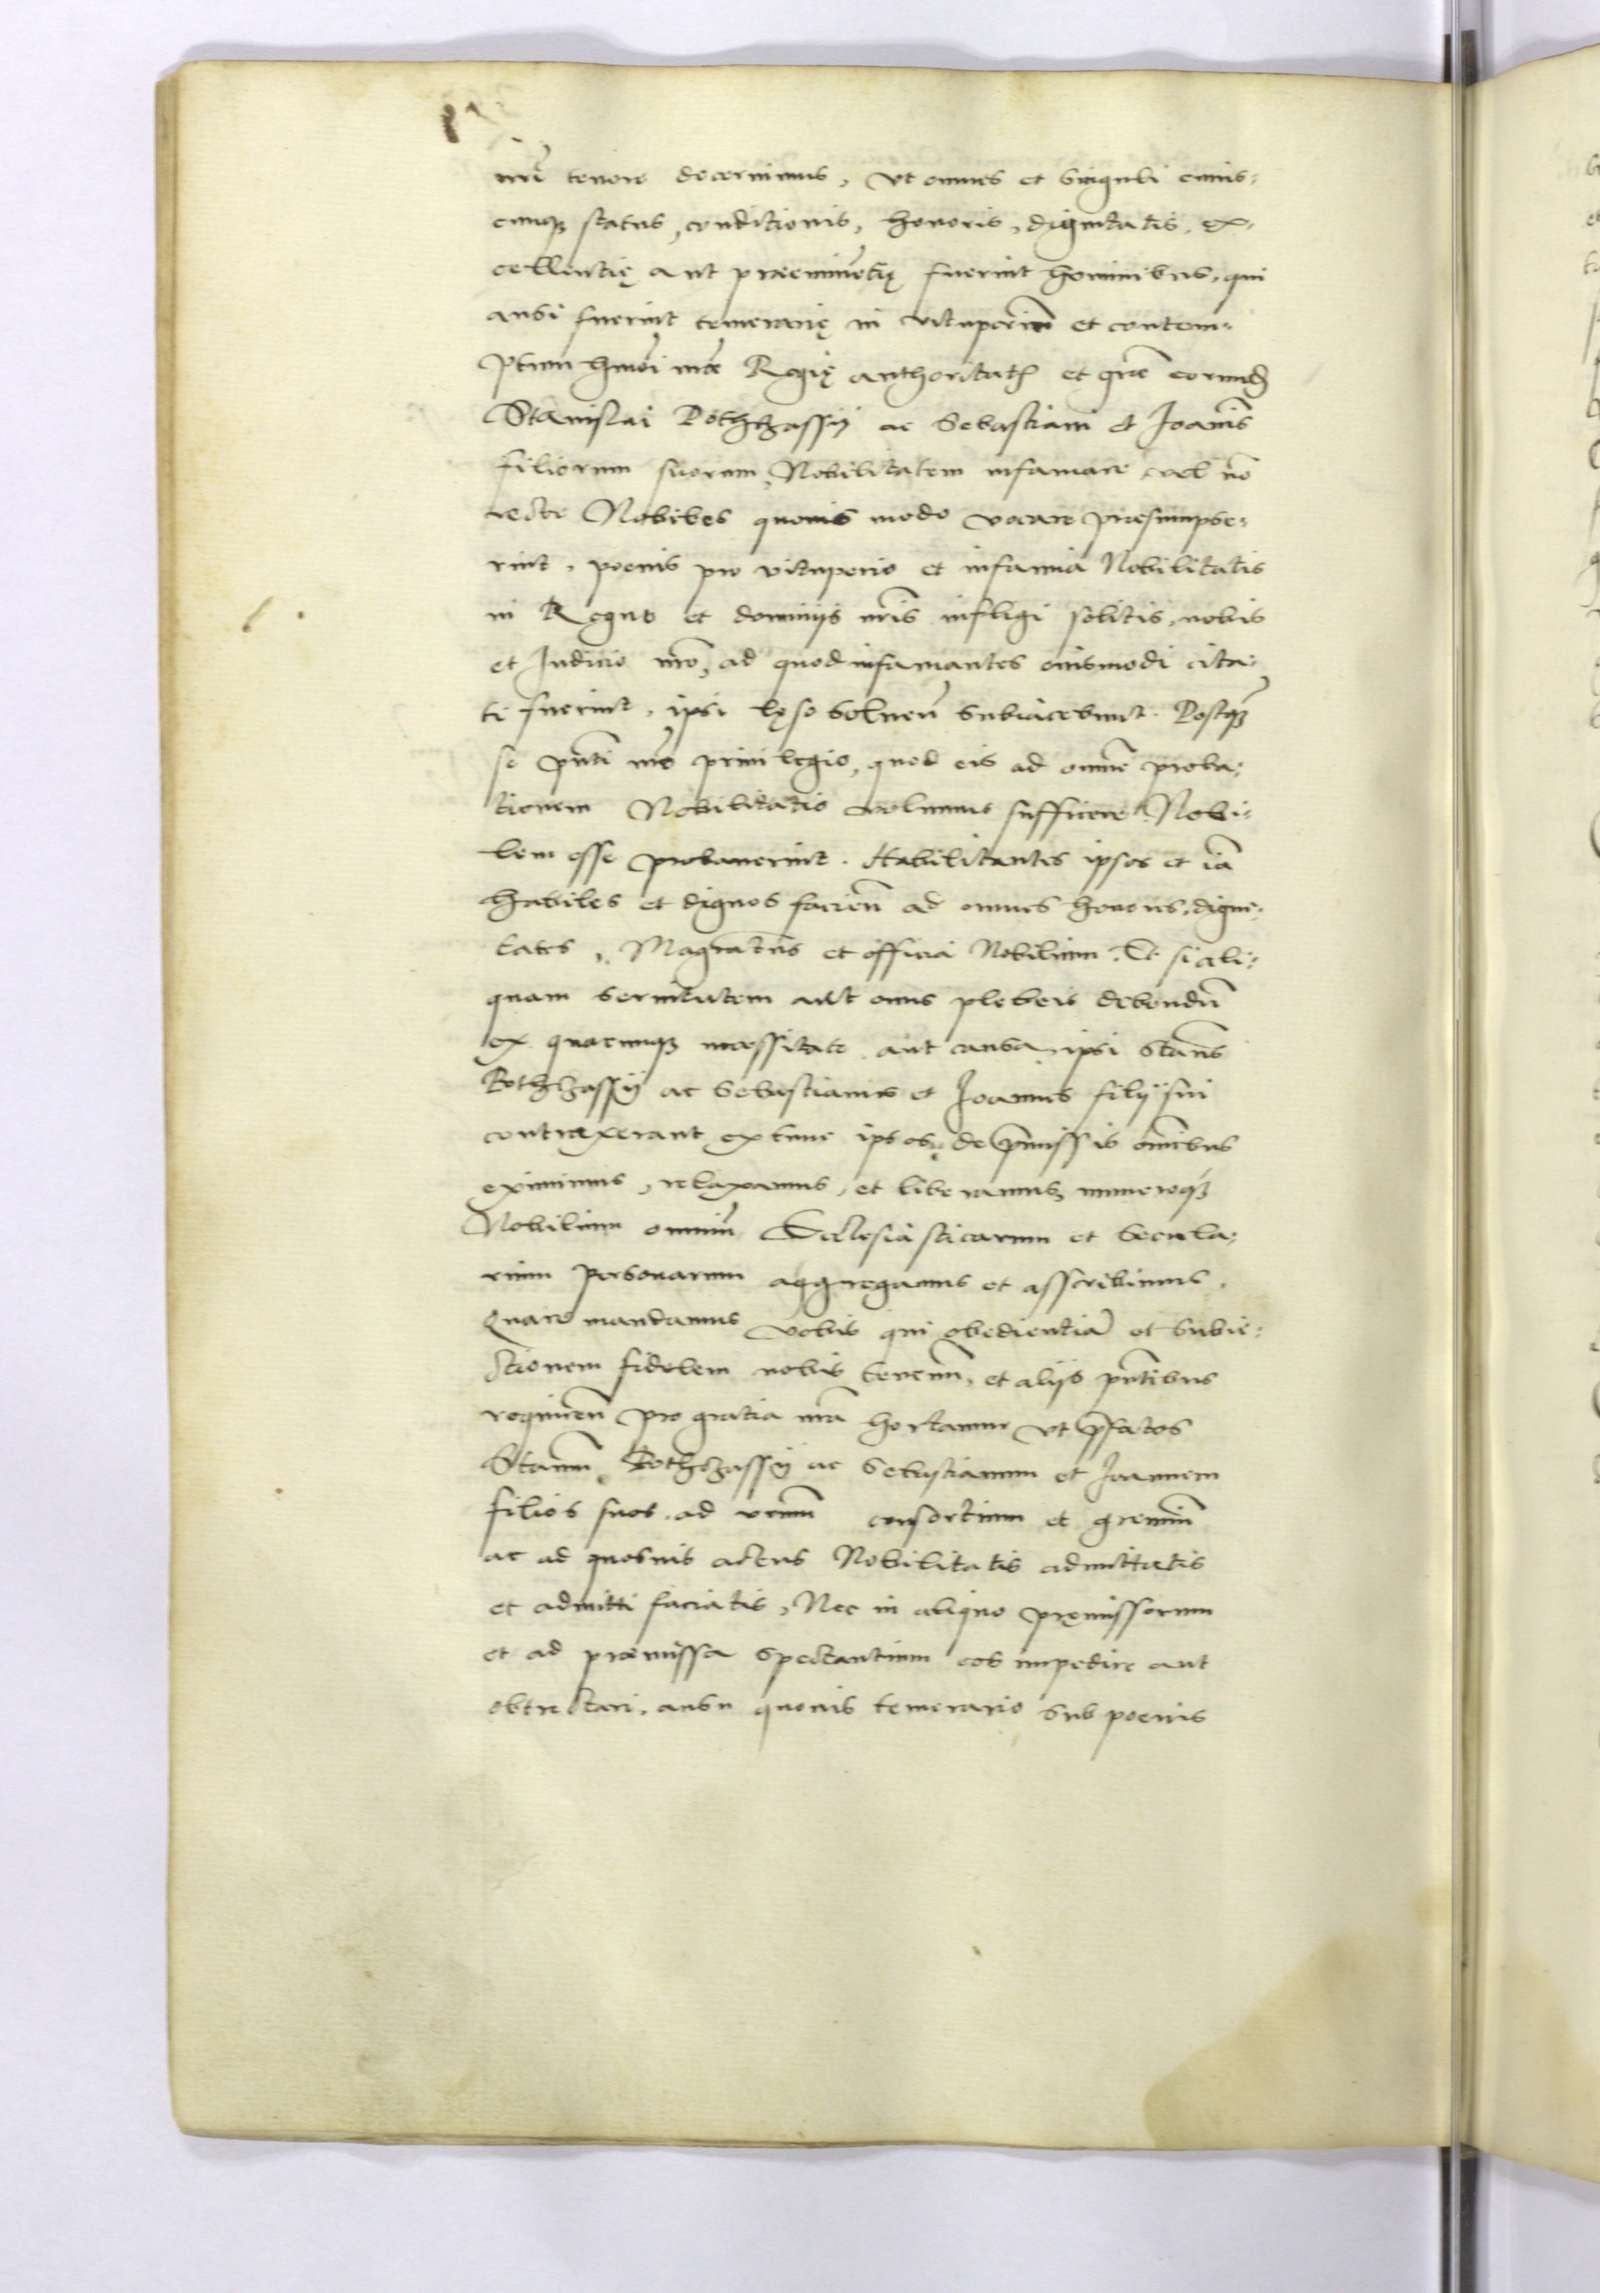 nrẽ tenore decernimus, vt omnes et singuli cuius-
cunqz status, conditionis, honoris, dignitatis, ex-
cellentię aut praeeminẽtię fuerint hominibus, qui
ausi fuerint temerarię in vituperiũ et contem-
ptum hmõi nrẽ Regię authoritatis et grãe eorund
Stanislai Pothhassÿ ac Sebastiani et Joañis
filiorum suorum, Nobilitatem infamare vel nõ
recte Nobiles quouis modo vocare praesumpse-
rint, poenis pro vituperio et infamia Nobilitatis
in Regno et dominijs nrĩs infligi solitis, nobis
et Judicio nrõ, ad quod infamantes eiusmodi cita-
ti fuerint, ipsi lęso soluẽn subiacebunt. Postqz
se pnti nrõ priuilegio, quod eis ad omnẽ proba-
tionem Nobilitatis volumus sufficere Nobi-
lem esse probauerint. Habilitantes ipsos et iã
habiles et dignos facieñ ad omnes honores, digni-
tates, Magratus et officia Nobilium. Et si ali-
quam seruitutem aut onus plebeis debendũ
ex quacunqz necessitate aut causa, ipsi Stañs
Pothhassÿ ac Sebastianus et Joannes filij sui
contraxerant ex tunc ipsos, de pmissis omĩbus
eximimus, relaxamus, et liberamus, numeroqz
Nobilium omniũ Ecclesiasticarum et Secula-
rium personarum aggregamus et asscribimus.
Quare mandamus vobis qui obedientiã et subie-
ctionem fidelem nobis teneṁ, et alijs pntibus
requireñ pro gratia nrã hortamur vt pfatos
Stanum Pothhassÿ ac Sebastianum et Joannem
filios suos ad vrum consortium et gremiũ
ac ad quosuis actus Nobilitatis admittatis
et admitti faciatis, Nec in aliquo pręmissorum
et ad praemissa spectantium eos impedire aut
obtrectari, ausu quouis temerario sub poenis